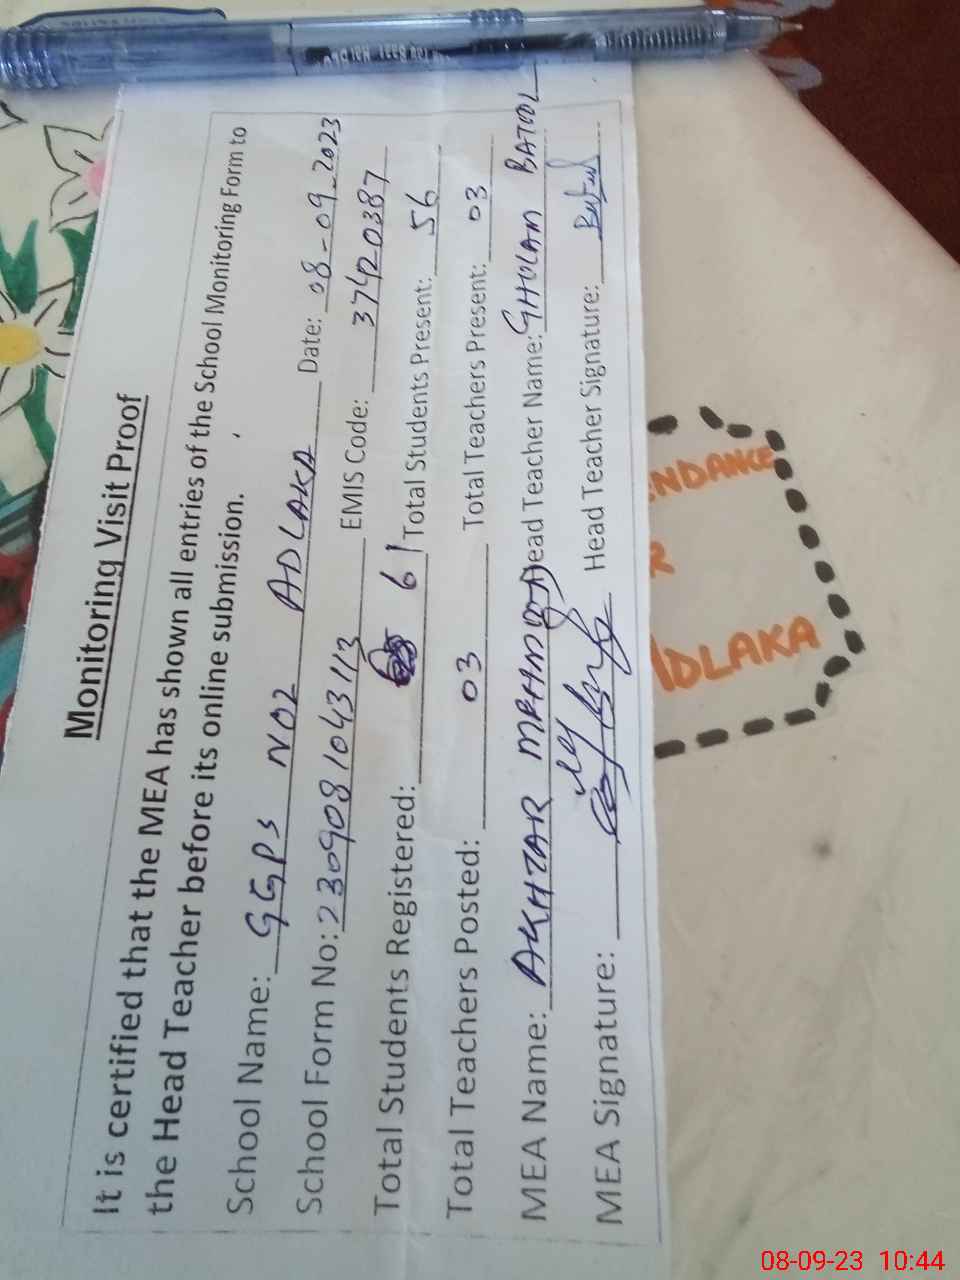 Monitoring Visit Proof
It is certified that the MEA has shown all entries of the School Monitoring Form to
the Head Teacher before its online submission.
School Name: GGPS NO2 ADLAKA Date: 08-09-2023
School Form No: 2309081043113 EMIS Code: 37420387
Total Students Registered: 61 Total Students Present: 56
Total Teachers Posted: 03 Total Teachers Present: 03
MEA Name: AKHTAR MEHMOOD Head Teacher Name: GHULAM BATOOL
MEA Signature: Head Teacher Signature: Batool
NDANCE
R
ADLAKA
08-09-23 10:44